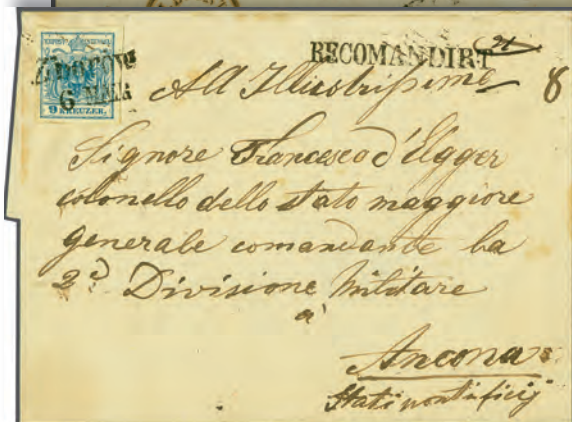 RECOMANDIRT
6 MAR
9 KREUZER.
8
All Illustrissimo
Signore Francesco d'Egger
colonello dello stato maggiore
generale comandante la
2ª Divisione Militare
à
Ancona
Stati pontificij